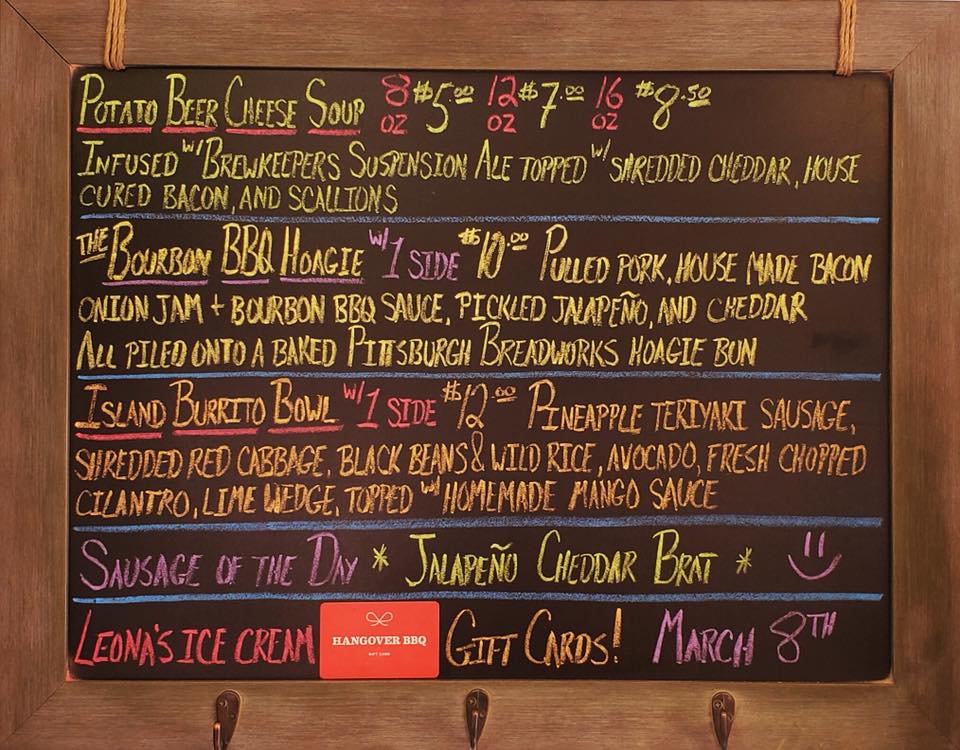 POTATO BEER CHEESE SOUP 8 OZ $5.00 12 OZ $7.00 16 OZ $8.50
INFUSED W/ BREWKEEPERS SUSPENSION ALE TOPPED W/ SHREDDED CHEDDAR, HOUSE
CURED BACON, AND SCALLIONS
THE BOURBON BBQ HOAGIE W/ 1 SIDE $10.00 PULLED PORK, HOUSE MADE BACON
ONION JAM + BOURBON BBQ SAUCE, PICKLED JALAPEÑO, AND CHEDDAR
ALL PILED ONTO A BAKED PITTSBURGH BREADWORKS HOAGIE BUN
ISLAND BURRITO BOWL W/ 1 SIDE $12.00 PINEAPPLE TERIYAKI SAUSAGE,
SHREDDED RED CABBAGE, BLACK BEANS & WILD RICE, AVOCADO, FRESH CHOPPED
CILANTRO, LIME WEDGE, TOPPED W/ HOMEMADE MANGO SAUCE
SAUSAGE OF THE DAY * JALAPEÑO CHEDDAR BRAT *
LEONA'S ICE CREAM HANGOVER BBQ GIFT CARDS! MARCH 8TH
GIFT CARD